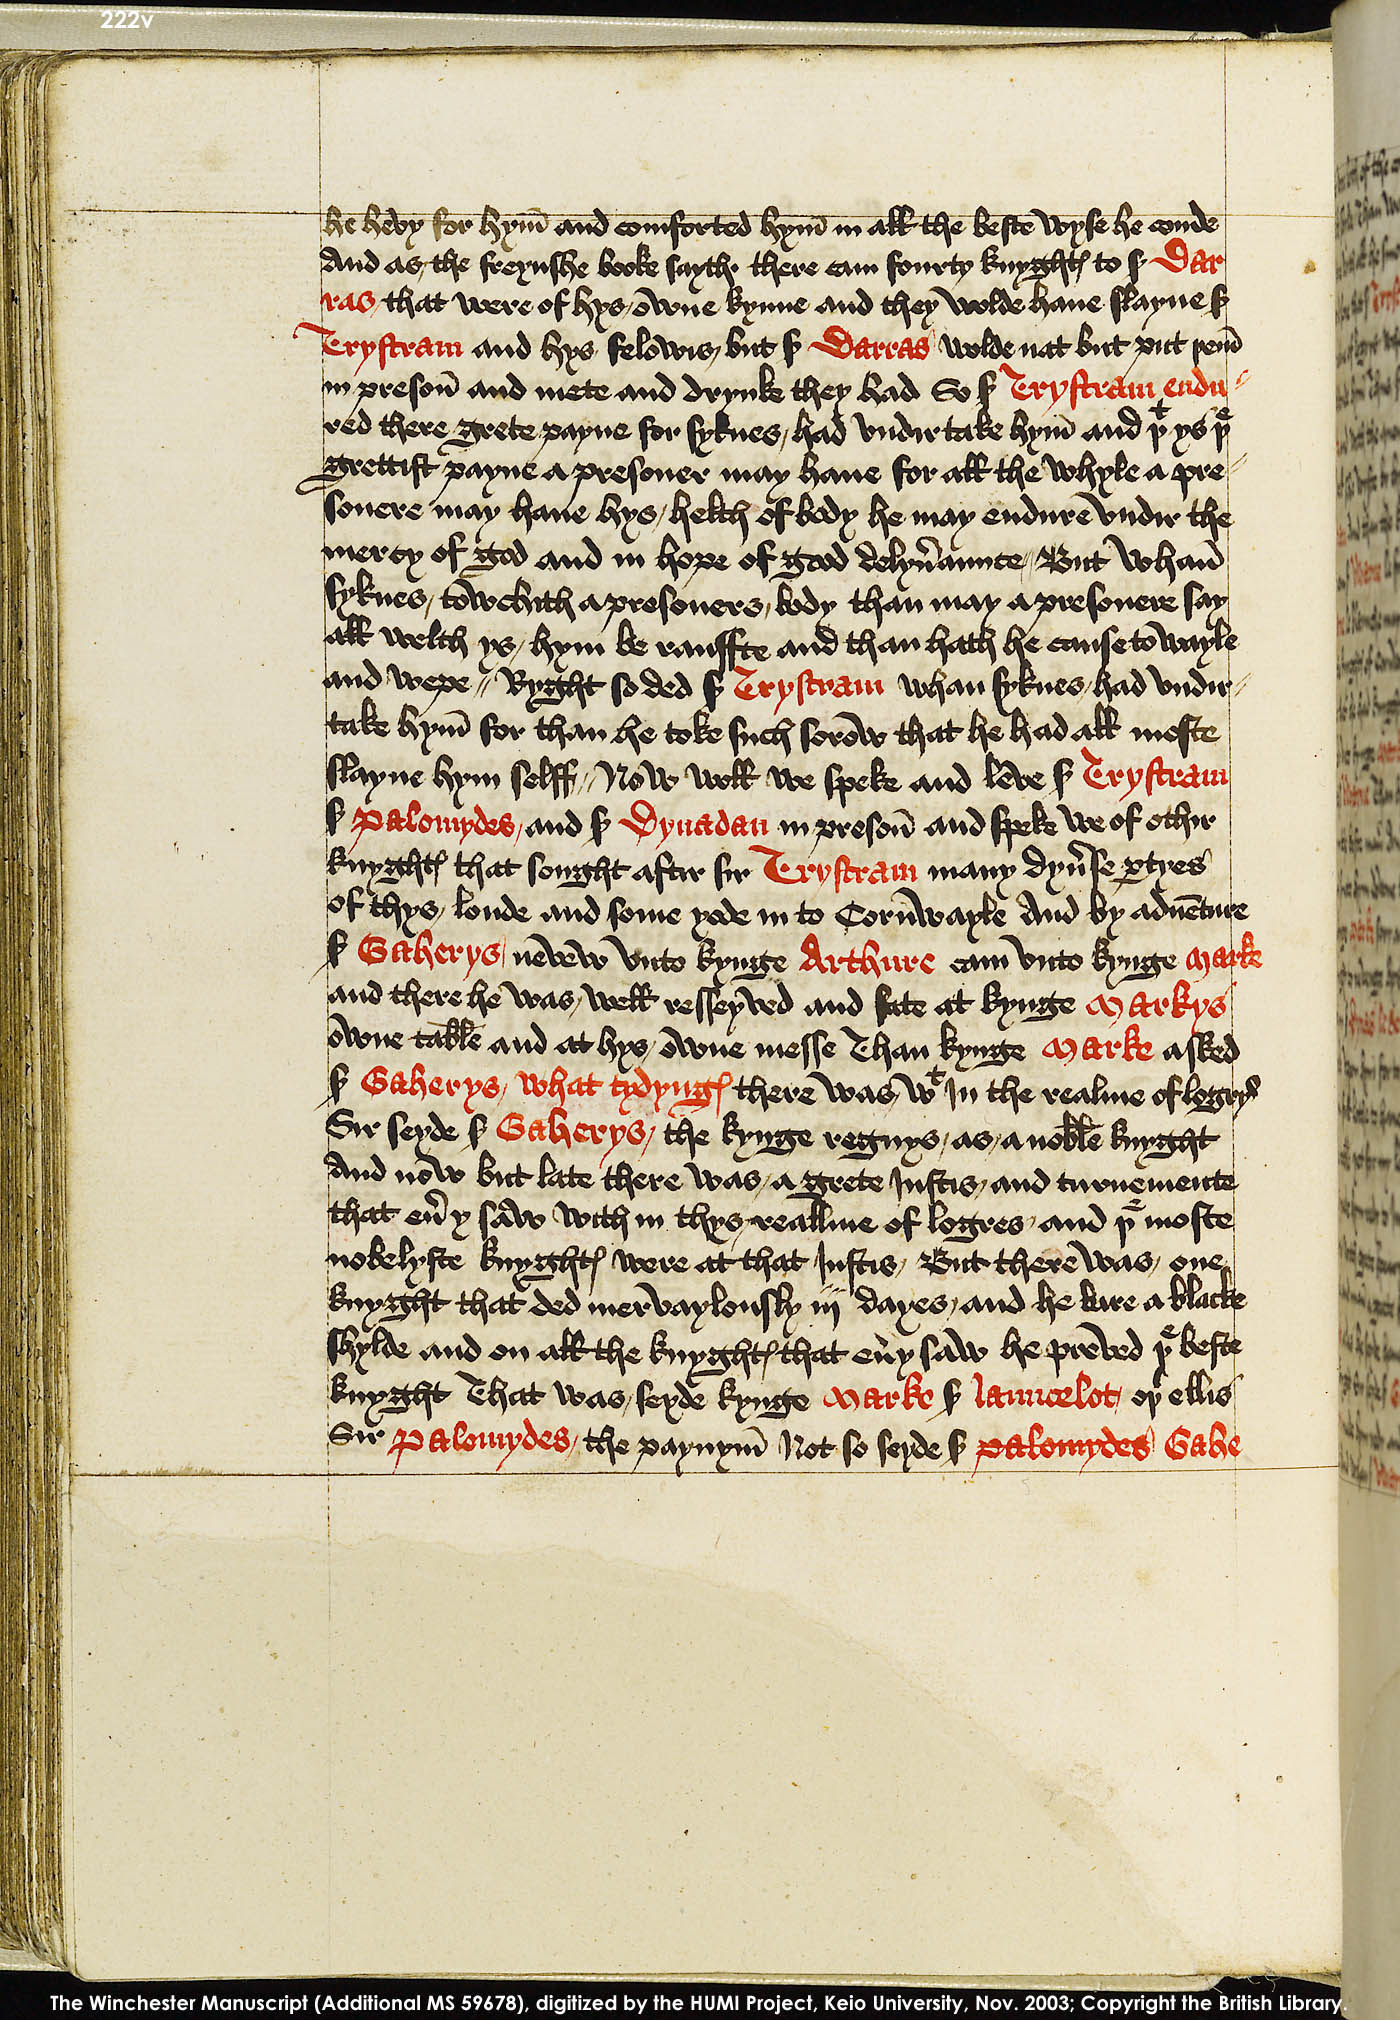 222v
he hevy for hym̄ and comforted hym̄ in all the beste wyse he coude
And as the freynshe booke sayth there cam fourty knyghtes to sʳ Dar
ras that were of hys owne kynne and they wolde haue slayne sʳ
Trystram and hys felowis but sʳ Darras wolde nat but put þem̄
in preson̄ and mete and drynke they had So sʳ Trystram endu-
red there grete payne for syknes had vndirtake hym̄ and þᵗ ys þᵉ
grettist payne a presoner may haue for all the whyle a pre-
sonere may haue hys helth of body he may endure vndir the
mercy of god and in hope of good delyūaunce // But whan̄
syknes towchith a presoners body than may a presonere say
all welth ys hym be rauffte and than hath he cause to wayle
and wepe // Ryght so ded sʳ Trystram whan syknes had vndir-
take hym̄ for than he toke such sorow that he had all moste
slayne hym selff // Now woll we speke and leve sʳ Trystram
sʳ Palomydes and sʳ Dynadan in preson̄ and speke we of othir
knyghtes that sought aftir sir Trystram many dyūse ꝑtyes
of thys londe and some yode in to Cornwayle And by aduēture
sʳ Gaherys nevew vnto kynge Arthure cam vnto kynge Marke
and there he was well resseyved and sate at kynge Markys
owne table and at hys owne messe Than kynge Marke asked
sʳ Gaherys what tydynges there was wᵗ In the realme of logrys
Sir seyde sʳ Gaherys the kynge regnys as a noble knyght
And now but late there was a grete Justis and turnemente
that eū y saw with in thys realme of logres and þᵉ moste
nobelyste knyghtes were at that Justis But there was one
knyght that ded mervaylously iij dayes and he bare a blacke
shylde and on all the knyghtes that eū y saw he preved þᵉ beste
knyght That was seyde kynge Marke sʳ launcelot oþ ellis
Sir Palomydes the paynym̄ Not so seyde sʳ Palomydes Gahe
The Winchester Manuscript (Additional MS 59678), digitized by the HUMI Project, Keio University, Nov. 2003; Copyright the British Library.